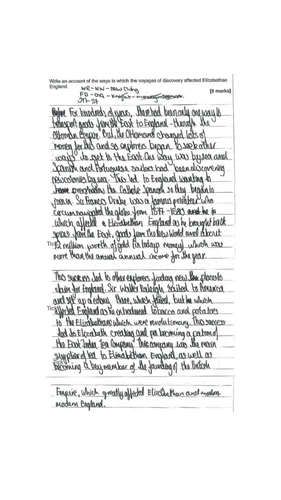 Write an account of the ways in which the voyages of discovery affected Elizabethan England.
[8 marks]
For hundreds of years, there had been only one way to
transport goods from the East to England - through the
Ottoman Empire. But, the Ottomans charged lots of
money for this and so explorers began to seek other
ways to get to the East. One way was by sea and
Spanish and Portuguese sailors had been discovering
by sea. This led to England wanting to
overshadow the Catholic Spanish so they began to
join in. Sir Francis Drake was a famous privateer who
circumnavigated the globe from 1577-1580 and he to
which affected Elizabethan England as he brought back
spices from the East, goods from the New World and about
million worth of gold (in today's money) which was
more than the annual income for the year.
This success led to other explorers finding new places to
claim for England. Sir Walter Raleigh sailed to America
and set up a colony there, which failed, but he which
affected England as he introduced tobacco and potatoes
to the Elizabethans which were revolutionary. This success
led to Elizabeth creating and becoming a patron of
the East India Tea Company. This company was the main
supplier of tea to Elizabethan England, as well as
becoming a key member of the founding of the British
Empire, which greatly affected Elizabethan and modern
modern England.